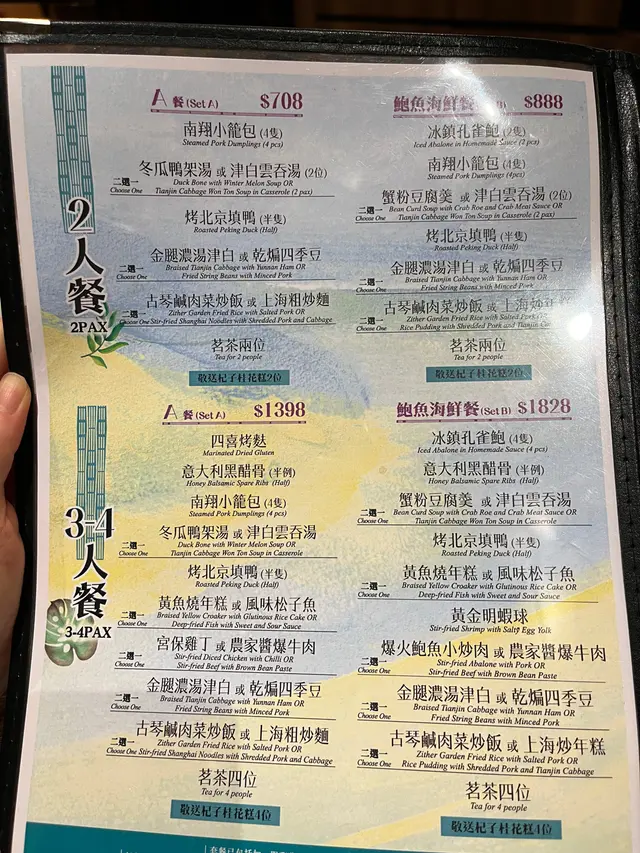 2人餐
2PAX
A 餐 (Set A) $708
南翔小籠包 (4隻)
Steamed Pork Dumplings (4 pcs)
二選一
Choose One
冬瓜鴨架湯 或 津白雲吞湯 (2位)
Duck Bone with Winter Melon Soup OR
Tianjin Cabbage Won Ton Soup in Casserole (2 pax)
烤北京填鴨 (半隻)
Roasted Peking Duck (Half)
二選一
Choose One
金腿濃湯津白 或 乾煸四季豆
Braised Tianjin Cabbage with Yunnan Ham OR
Fried String Beans with Minced Pork
二選一
Choose One
古琴鹹肉菜炒飯 或 上海粗炒麵
Zither Garden Fried Rice with Salted Pork OR
Stir-fried Shanghai Noodles with Shredded Pork and Cabbage
茗茶兩位
Tea for 2 people
敬送杞子桂花糕2位
鮑魚海鮮餐 $888
冰鎮孔雀鮑 (2隻)
Iced Abalone in Homemade Sauce (2 pcs)
南翔小籠包 (4隻)
Steamed Pork Dumplings (4pcs)
二選一
Choose One
蟹粉豆腐羹 或 津白雲吞湯 (2位)
Bean Curd Soup with Crab Roe and Crab Meat Sauce OR
Tianjin Cabbage Won Ton Soup in Casserole (2 pax)
烤北京填鴨 (半隻)
Roasted Peking Duck (Half)
二選一
Choose One
金腿濃湯津白 或 乾煸四季豆
Braised Tianjin Cabbage with Yunnan Ham OR
Fried String Beans with Minced Pork
二選一
Choose One
古琴鹹肉菜炒飯 或 上海炒年糕
Zither Garden Fried Rice with Salted Pork OR
Rice Pudding with Shredded Pork and Tianjin
茗茶兩位
Tea for 2 people
敬送杞子桂花糕2位
3-4人餐
3-4PAX
A 餐 (Set A) $1398
四喜烤麩
Marinated Dried Gluten
意大利黑醋骨 (半例)
Honey Balsamic Spare Ribs (Half)
南翔小籠包 (4隻)
Steamed Pork Dumplings (4 pcs)
二選一
Choose One
冬瓜鴨架湯 或 津白雲吞湯
Duck Bone with Winter Melon Soup OR
Tianjin Cabbage Won Ton Soup in Casserole
烤北京填鴨 (半隻)
Roasted Peking Duck (Half)
二選一
Choose One
黃魚燒年糕 或 風味松子魚
Braised Yellow Croaker with Glutinous Rice Cake OR
Deep-fried Fish with Sweet and Sour Sauce
二選一
Choose One
宮保雞丁 或 農家醬爆牛肉
Stir-fried Diced Chicken with Chilli OR
Stir-fried Beef with Brown Bean Paste
二選一
Choose One
金腿濃湯津白 或 乾煸四季豆
Braised Tianjin Cabbage with Yunnan Ham OR
Fried String Beans with Minced Pork
二選一
Choose One
古琴鹹肉菜炒飯 或 上海粗炒麵
Zither Garden Fried Rice with Salted Pork OR
Stir-fried Shanghai Noodles with Shredded Pork and Cabbage
茗茶四位
Tea for 4 people
敬送杞子桂花糕4位
鮑魚海鮮餐 (Set B) $1828
冰鎮孔雀鮑 (4隻)
Iced Abalone in Homemade Sauce (4 pcs)
意大利黑醋骨 (半例)
Honey Balsamic Spare Ribs (Half)
二選一
Choose One
蟹粉豆腐羹 或 津白雲吞湯
Bean Curd Soup with Crab Roe and Crab Meat Sauce OR
Tianjin Cabbage Won Ton Soup in Casserole
烤北京填鴨 (半隻)
Roasted Peking Duck (Half)
二選一
Choose One
黃魚燒年糕 或 風味松子魚
Braised Yellow Croaker with Glutinous Rice Cake OR
Deep-fried Fish with Sweet and Sour Sauce
黃金明蝦球
Stir-fried Shrimp with Salty Egg Yolk
二選一
Choose One
爆火鮑魚小炒肉 或 農家醬爆牛肉
Stir-fried Abalone with Pork OR
Stir-fried Beef with Brown Bean Paste
二選一
Choose One
金腿濃湯津白 或 乾煸四季豆
Braised Tianjin Cabbage with Yunnan Ham OR
Fried String Beans with Minced Pork
二選一
Choose One
古琴鹹肉菜炒飯 或 上海炒年糕
Zither Garden Fried Rice with Salted Pork OR
Rice Pudding with Shredded Pork and Tianjin Cabbage
茗茶四位
Tea for 4 people
敬送杞子桂花糕4位